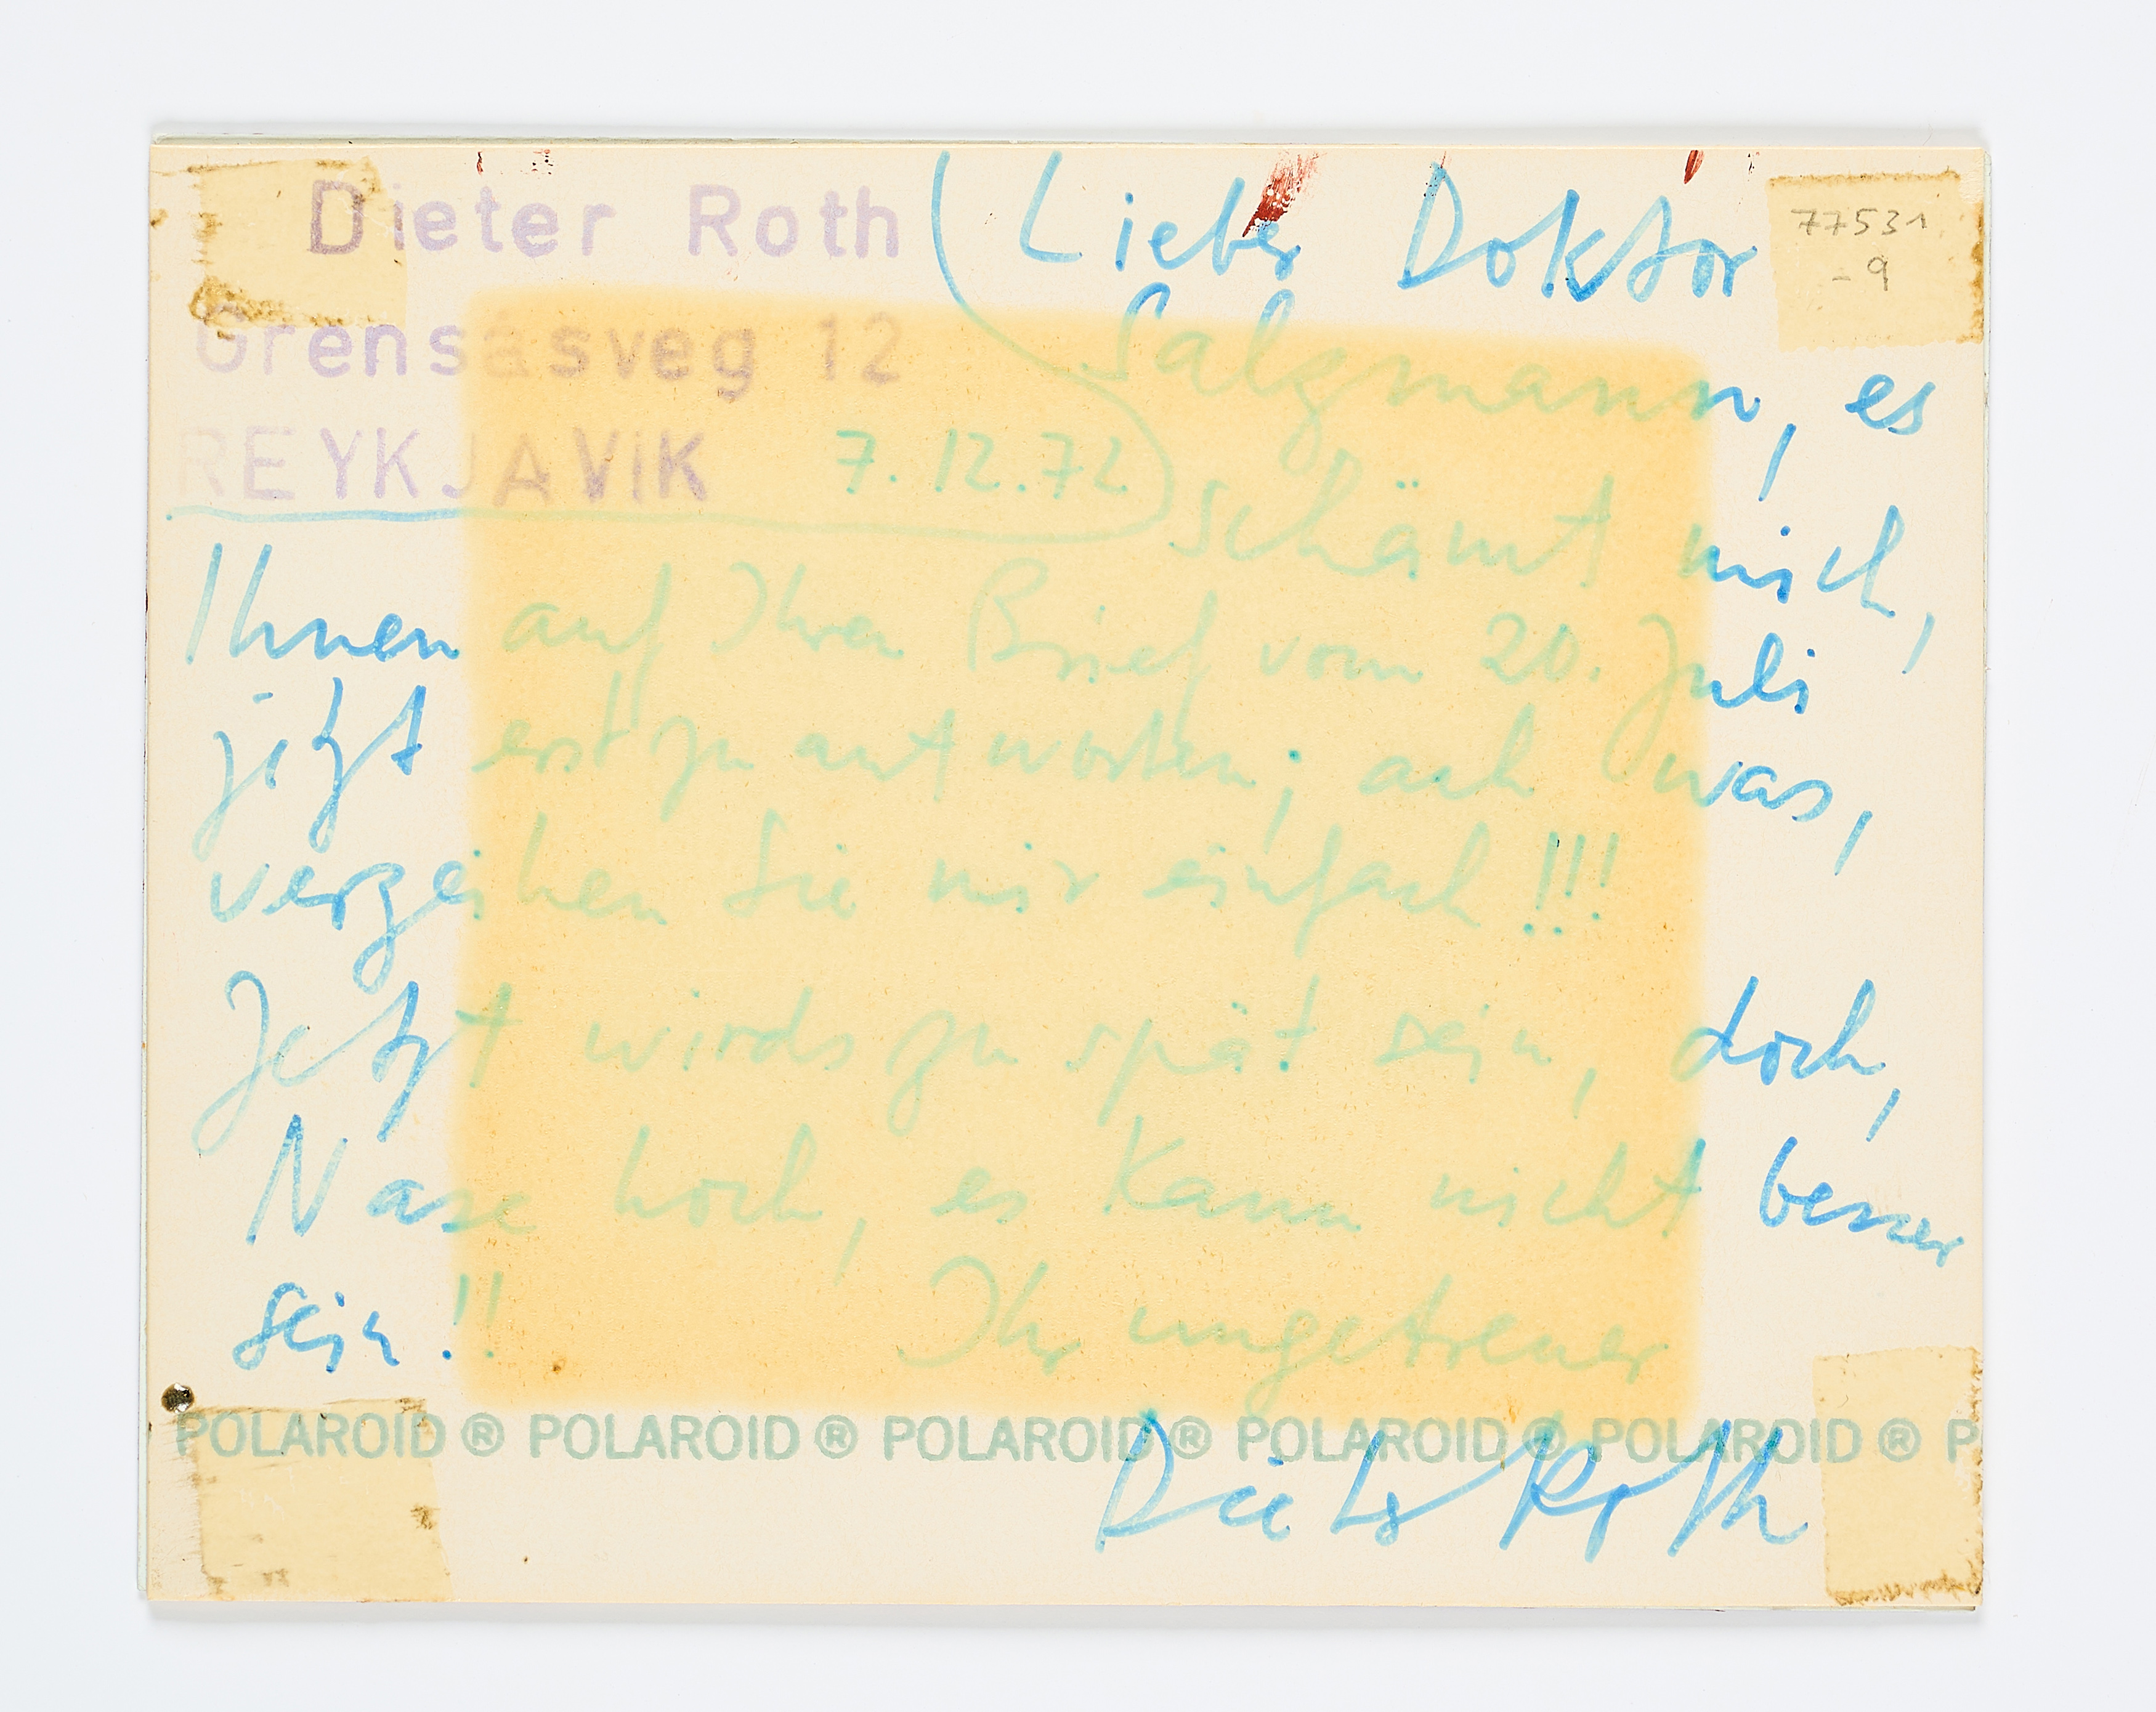 Dieter Roth
Grensásveg 12
REYKJAVIK 7.12.72
Lieber Doktor
Salzmann, es
schämt mich,
Ihnen auf Ihren Brief vom 20. Juli
jetzt erst zu antworten; ach was,
verzeihen Sie mir einfach!!!
Jetzt wirds zu spät sein, doch,
Nase hoch, es kann nicht besser
sein!!
Ihr ungetreuer
POLAROID ® POLAROID ® POLAROID ® POLAROID ® POLAROID ® P
Dieter Roth
77531
-9